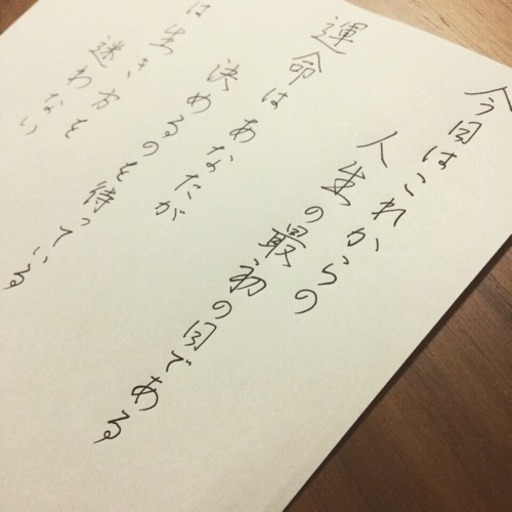 今日はこれからの
人生の最初の日である
運命は
決めるのを待っている
あなたが
は生き方を
迷わない